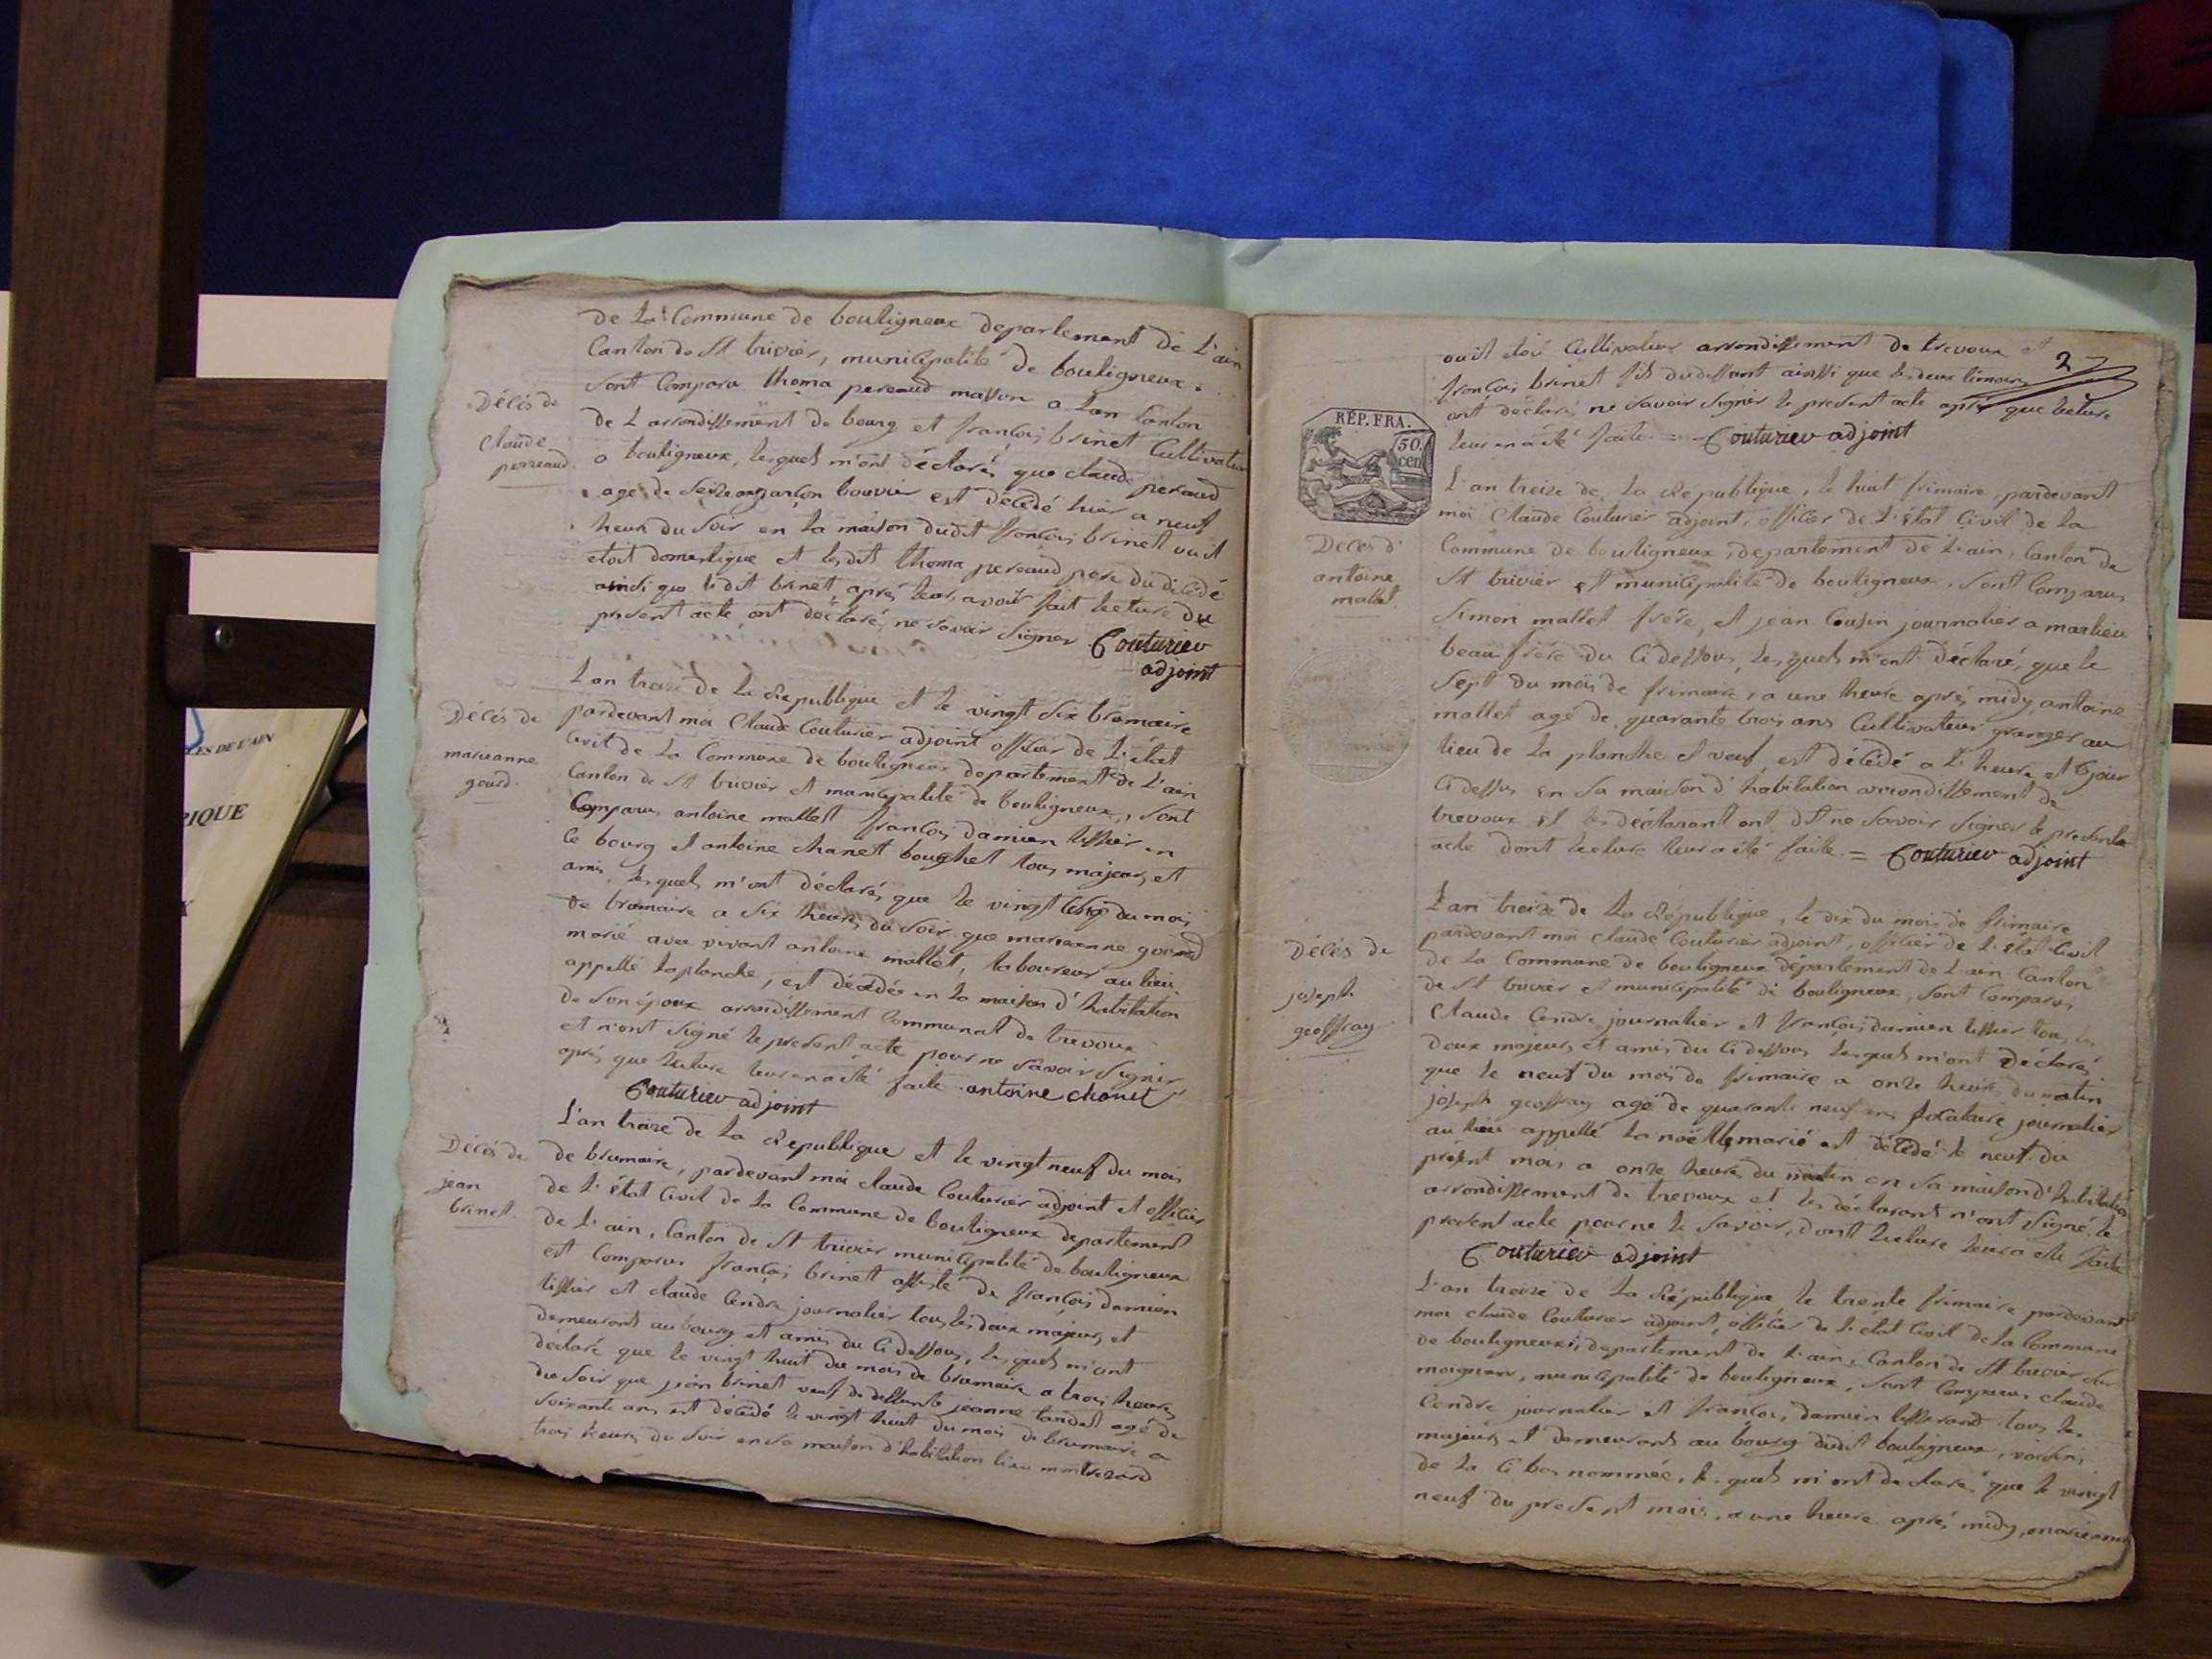 de La Commune de bouligneux departement de L'ain
Canton de St trivier, municipalité de bouligneux.
Sont Comparu thoma pereaud masson a Lan Canton
de L'arrondissement de bourg et françois brinet Cultivateur
a bouligneux, lesquels m'ont déclarés que claude peraud
agé de Seize ans garçon bouvier est décédé hier a neuf
heur du Soir en La maison dudit françois brinet ou il
etoit domestique et lesdit thoma pereaud pere du décédé
ainsi que ledit brinet, après leur avoir fait lecture du
present acte ont déclaré ne Savoir Signer Couturier
adjoint
Décés de
Claude
perreaud
L'an treize de La Republique et le vingt Six brumaire
pardevant moi Claude Couturier adjoint officier de L'état
Civil de La Commune de bouligneux departement de L'ain
Canton de St trivier et municipalité de bouligneux, Sont
Comparus antoine mallet françois damien tissier en
Ce bourg et antoine chanett bouchet tous majeurs et
amis, lesquels m'ont déclarés que le vingt du mois
de brumaire a Six heures du Soir que marieanne gourd
marié avec vivant antoine mallet, laboureur au lieu
appellé laplanche, est décédée en La maison d'habitation
de Son époux arrondissement Communal de trevoux
et n'ont Signé le present acte pour ne Savoir Signer
après que lecture leur en a été faite. antoine chanet
Couturier adjoint
Décés de
marieanne
gourd.
L'an treize de La Republique et le vingt neuf du mois
de brumaire, pardevant moi claude Couturier adjoint et officier
de L'état Civil de La Commune de bouligneux departement
de L'ain, Canton de St trivier municipalité de bouligneux
est Comparu françois brinet assisté de françois damien
tissier et claude Cendre journalier tous les deux majeurs et
demeurants au bourg et amis du Ci dessous, lesquels m'ont
déclaré que le vingt huit du mois de brumaire a trois heures
du Soir que jean brinet veuf de deffunte jeanne tandet agé de
Soixante ans est décédé le vingt huit du mois de brumaire a
trois heures du Soir en Sa maison d'habitation lieu montrozard
Décés de
jean
brinet.
2
ou il etoi Cultivateur arrondissement de trevoux et
françois brinet fils dudeffunt ainssi que les deux timoins
ont déclarés ne Savoir Signer le present acte après que lecture
leur en a été faite = Couturier adjoint
RÉP. FRA.
50
cen
L'an treize de La Republique, le huit frimaire, pardevant
moi Claude Couturier adjoint, officier de L'état Civil de La
Commune de bouligneux, departement de L'ain, Canton de
St trivier et municipalité de bouligneux, Sont Comparus
Simon mallet frére, et jean Cousin journalier a marlieu
beau frére du Ci dessous, lesquels m'ont déclarés que le
Sept du mois de frimaire, a une heure après midy, antoine
mallet agé de quarante trois ans Cultivateur granger au
lieu de La planche et veuf, est décédé a L'heure et Ojour
Ci dessus en Sa maison d'habitation arrondissement de
trevoux et les déclarant ont dit ne Savoir Signer le presente
acte dont lecture leur a été faite. = Couturier adjoint
Décés d'
antoine
mallet.
L'an treize de La République, le dix du mois de frimaire
pardevant moi claude Couturier adjoint, officier de L'état Civil
de La Commune de bouligneux département de L'ain Canton
de St trivier et municipalité de bouligneux, Sont Comparus
Claude Cendre journalier et françois damien tissier tous les
deux majeurs et amis du Ci dessous lesquels m'ont Déclarés
que le neuf du mois de frimaire a onze heures du matin
joseph geoffray agé de quarante neuf ans locataire journalier
au lieu appellé La noëlle marié est décédé le neuf du
présent mois a onze heures du matin en Sa maison d'habitation
arrondissement de trevoux et les déclarants n'ont Signé le
present acte pour ne le Savoir, dont lecture leur a été faite
Couturier adjoint
Décés de
joseph
geoffray
L'an treize de La République le trente frimaire pardevant
moi claude Couturier adjoint, officier de L'état Civil de La Commune
de bouligneux, departement de L'ain, Canton de St trivier Sur
moignans, municipalité de bouligneux, Sont Comparus claude
Cendre journalier et françois damien tisserand tous les
majeurs et demeurants au bourg dudit bouligneux, voisins
de La Ci bas nommée, lesquels m'ont declarés que le vingt
neuf du present mois, a une heure après midy, marieanne